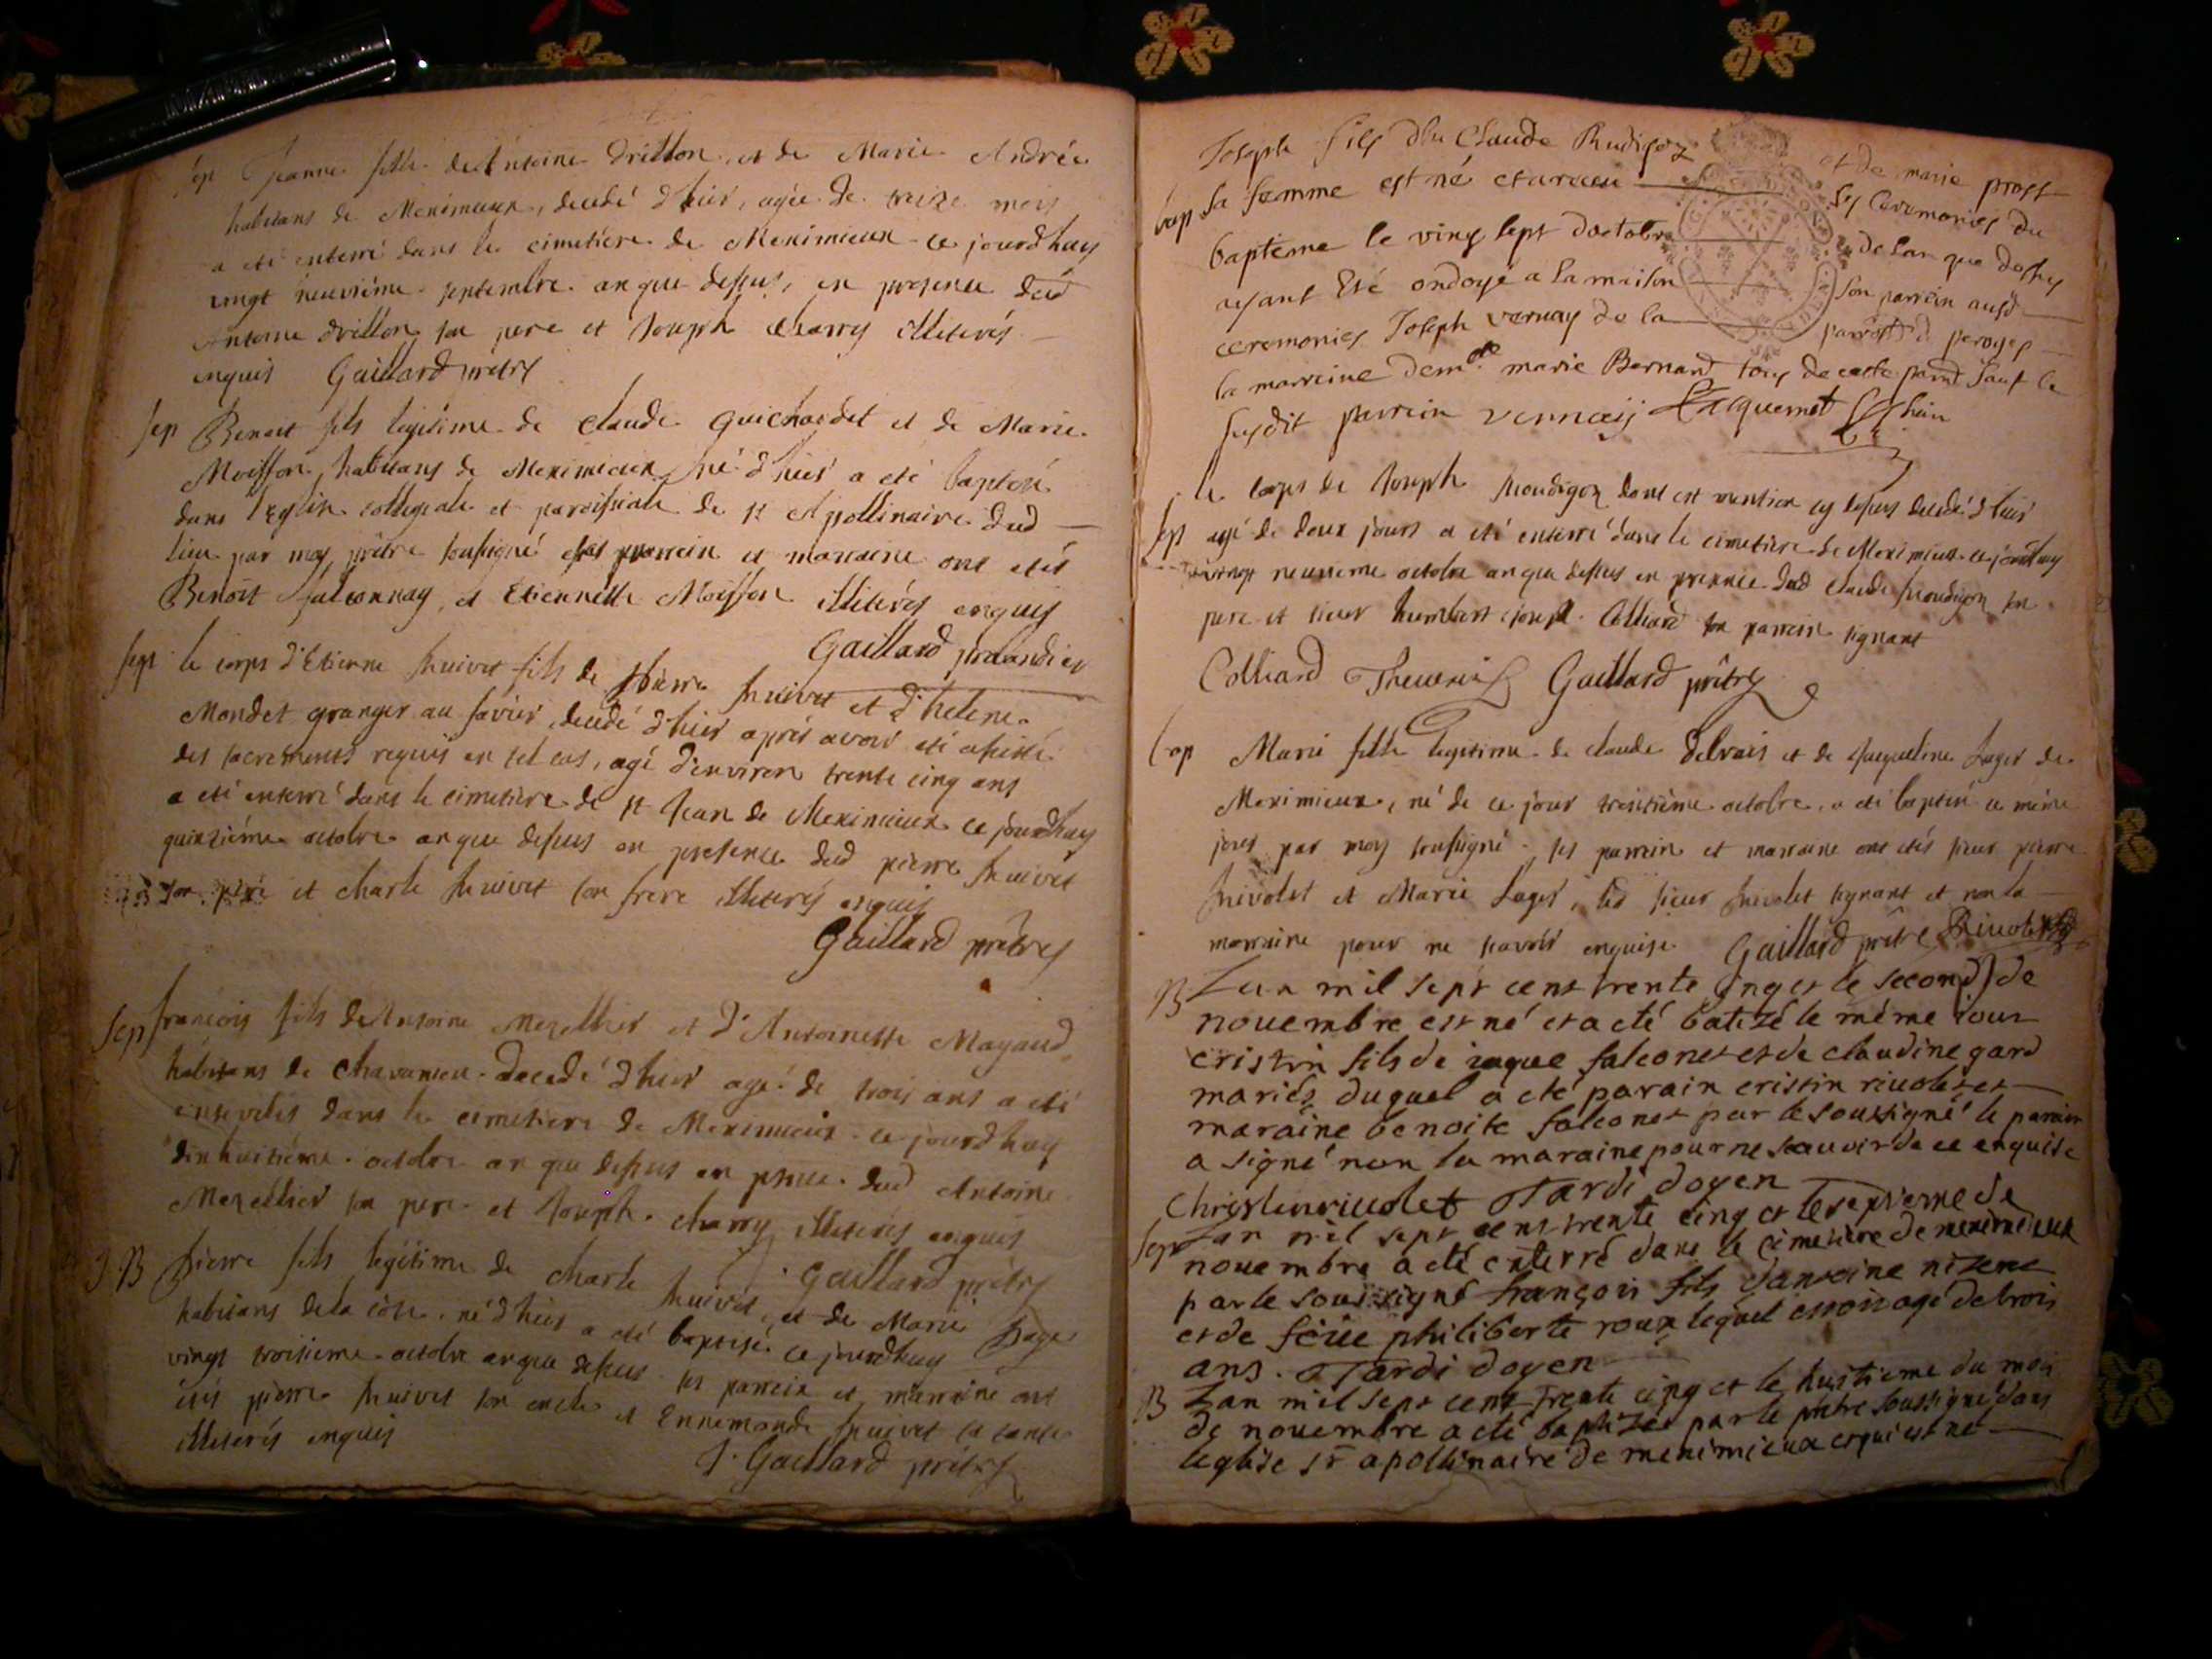 sep Jeanne fille de Antoine Drillon, et de Marie Andrée
habitans de Meximieux, decedé d'hier, agée de treize mois
a eté enterré dans le cimetière de Meximieux ce jourdhuy
vingt neuvième septembre an que dessus, en presence dud
Antoine Drillon son pere et Joseph Charry illiterés
enquis Gaillard prêtre
sep Benoit fils legitime de Claude Guichardet et de Marie
Moisson, habitans de Meximieux né d'hier a eté baptisé
dans l'Eglise collegiale et paroissiale de st Apollinaire dud
lieu par moy prêtre soussigné ses parrein et marraine ont etés
Benoit falconnay, et Etiennette Moisson illiterés enquis
Gaillard
sept le corps d'Etienne fils de pierre et d'helene
Mondet granger au decedé d'hier après avoir eté assisté
des sacrements requis en tel cas, agé d'environ trente cinq ans
a eté enterré dans le cimetière de st Jean de Meximieux ce jourdhuy
quinzième octobre an que dessus en presence dud pierre
son père et charle son frere illiterés enquis
Gaillard prêtre
sep françois fils de Antoine Mezellier et d'Antoinette Mayaud
habitans de Chavanieu decedé d'hier agé de trois ans a eté
enseveli dans le cimetiere de Meximieux ce jourdhuy
dixhuitième octobre an que dessus en pnce dud Antoine
Mezellier son pere et Joseph charry illiterés enquis
Gaillard prêtre
B Pierre fils legitime de charle et de Marie
habitans de la côte, né d'hier a eté baptisé ce jourdhuy
vingt troisieme octobre an que dessus ses parrein et marraine ont
etés pierre son oncle et Ennemonde sa tante
illiterés enquis
J. Gaillard prêtre
Joseph fils du Claude Rudigoz et de marie prost
bap sa femme est né et a receu les Ceremonies du
bapteme le vingt sept doctobre de lan que dessus
ayant Eté ondoyé a la maison son parrein ausd
ceremonies Joseph vernay de la parroisse de peroges
la marreine dem.lle marie Bernard tous de cette parr. sauf le
susdit parrein vernaij Jacquemet
le corps de Joseph dont est mention cy dessus decedé d'hier
sep agé de deux jours a eté enterré dans le cimetière de Meximieux ce jourdhuy
vingt neuvieme octobre an que dessus en presence dud Claude son
pere et sieur humbert joseph Colliard son parrein signant
Colliard Gaillard prêtre
bap Marie fille legitime de claude delrais et de Jacqueline Lager de
Meximieux, né de ce jour trentième octobre, a eté baptisé ce même
jour par moy soussigné, ses parrein et marraine ont etés sieur pierre
Rivolet et Marie Lager, led sieur Rivolet signant et non la
marraine pour ne scavoir enquise Gaillard prêtre Rivolet
B Lan mil sept cent trente cinq et le second de
nouembre est né et a eté batizé le même iour
cristin fils de iaque falconet et de claudine gard
mariés duquel a eté parain cristin riuolet et
maraine benoite falconet par le soussigné le parain
a signé non la maraine pour ne scauoir de ce enquise
Christin riuolet Tardi doyen
sep Lan mil sept cent trente cinq et le septieme de
nouembre a eté enterré dans le cimetiere de meximieux
par le soussigné françois fils dantoine nizere
et de feüe philiberte roux lequel estoit agé de trois
ans. Tardi doyen
B Lan mil sept cent trente cinq et le huitieme du mois
de nouembre a eté baptizée par le pretre soussigné dans
leglise st apollinaire de meximieux et qui est né